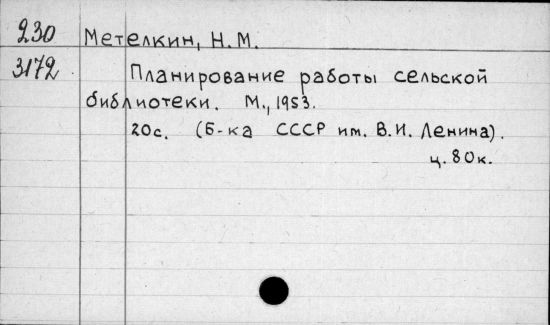 230
3172
Метелкин, Н.М.
Планирование работы сельской
библиотеки. М., 1953.
20с. (Б-ка СССР им. В.И. Ленина).
ц. 80к.